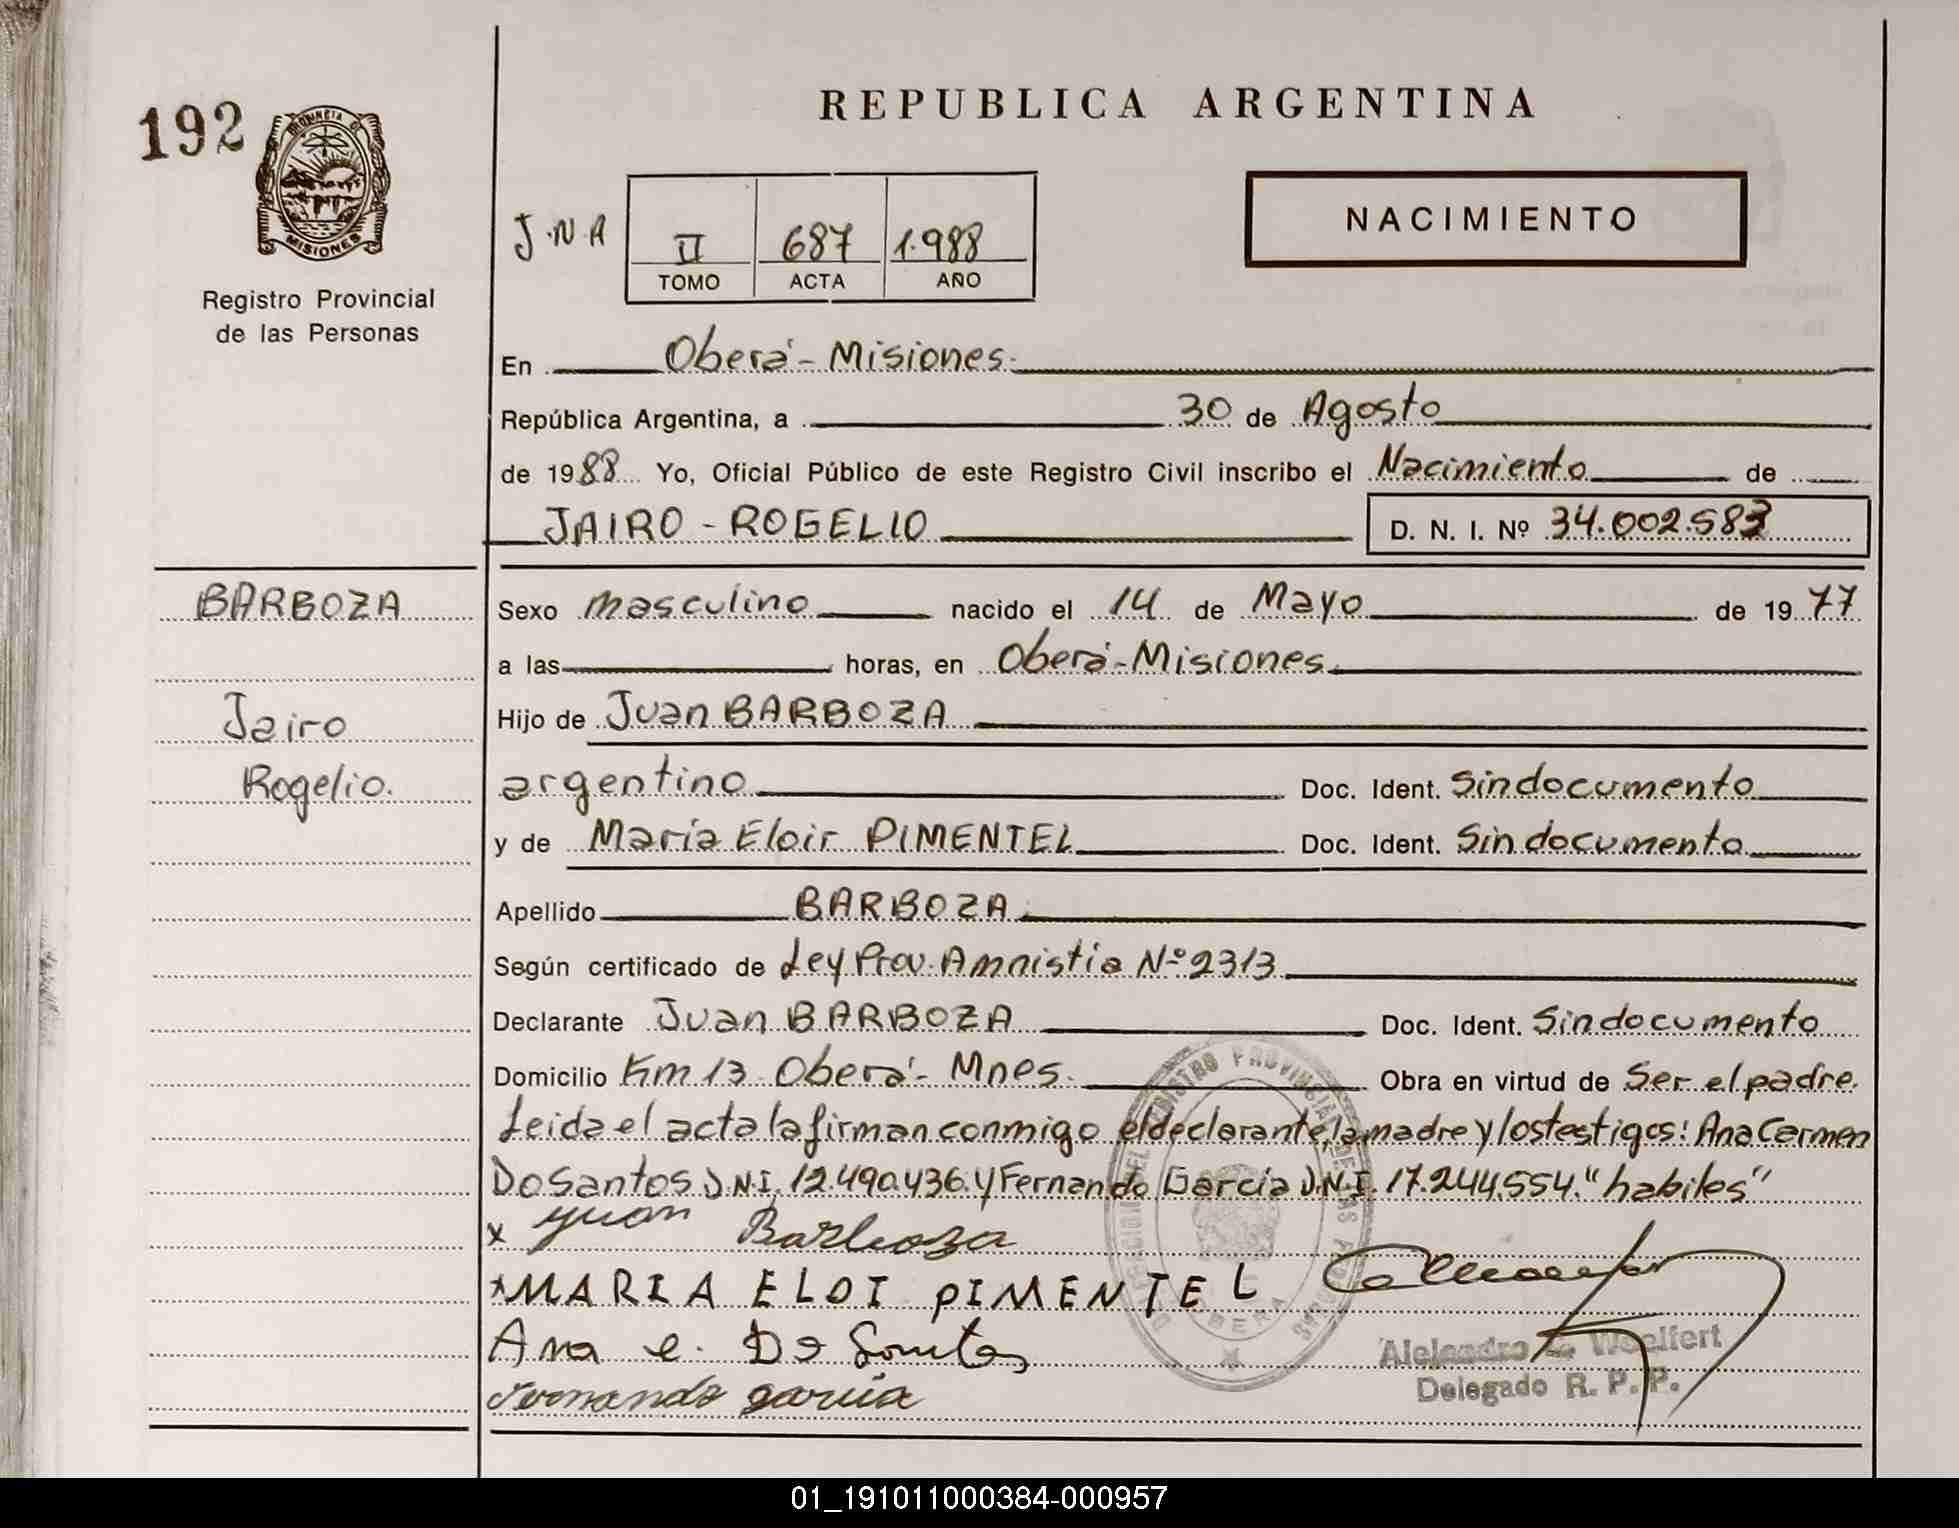 REPUBLICA ARGENTINA
192
PROVINCIA DE
MISIONES
Registro Provincial
de las Personas
J.N.A
II 687 1.988
TOMO ACTA AÑO
NACIMIENTO
En Oberá - Misiones.
República Argentina, a 30 de Agosto
de 1988 Yo, Oficial Público de este Registro Civil inscribo el Nacimiento de
JAIRO - ROGELIO D. N. I. Nº 34.002.583
BARBOZA
Jairo
Rogelio.
Sexo masculino nacido el 14 de Mayo de 1977
a las horas, en Oberá - Misiones.
Hijo de Juan BARBOZA
argentino Doc. Ident. Sin documento
y de María Eloir PIMENTEL Doc. Ident. Sin documento
Apellido BARBOZA
Según certificado de Ley Prov. Amnistía Nº 2313
Declarante Juan BARBOZA Doc. Ident. Sin documento
Domicilio Km 13 Oberá - Mnes. Obra en virtud de Ser el padre.
Leida el acta la firman conmigo el declarante, la madre y los testigos: Ana Carmen
Do Santos D.N.I. 12.490.436. y Fernando Garcia D.N.I. 17.244.554. "habiles"
x Juan Barboza
x MARIA ELOI PIMENTEL
Ana C. Do Santos
Fernando garcia
DELEGACION DEL REGISTRO PROVINCIAL DE LAS PERSONAS
OBERA
Alejandro Woelfert
Delegado R. P. P.
01_191011000384-000957